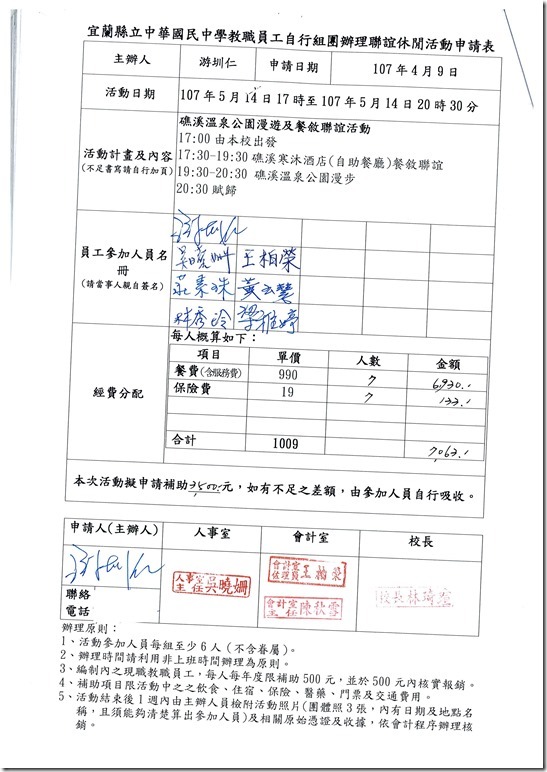 宜蘭縣立中華國民中學教職員工自行組團辦理聯誼休閒活動申請表
主辦人 游圳仁 申請日期 107 年 4 月 9 日
活動日期 107 年 5 月 14 日 17 時至 107 年 5 月 14 日 20 時 30 分
活動計畫及內容
(不足書寫請自行加頁)
礁溪溫泉公園漫遊及餐敘聯誼活動
17:00 由本校出發
17:30-19:30 礁溪寒沐酒店(自助餐廳)餐敘聯誼
19:30-20:30 礁溪溫泉公園漫步
20:30 賦歸
員工參加人員名冊
(請當事人親自簽名)
吳曉珊 王柏榮
莊素珠 黃玄慧
林秀玲 梁雅婷
經費分配
每人概算如下：
項目 單價 人數 金額
餐費(含服務費) 990 7 6,930.
保險費 19 7 133.
合計 1009 7063.
本次活動擬申請補助3,500元，如有不足之差額，由參加人員自行吸收。
申請人(主辦人) 人事室 會計室 校長
人事室主任吳曉姍
會計室佐理員王柏榮
會計室主任陳秋雪
校長林琦瑩
聯絡
電話
辦理原則：
1、活動參加人員每組至少 6 人 (不含眷屬)。
2、辦理時間請利用非上班時間辦理為原則。
3、編制內之現職教職員工，每人每年度限補助 500 元，並於 500 元內核實報銷。
4、補助項目限活動中之之飲食、住宿、保險、醫藥、門票及交通費用。
5、活動結束後 1 週內由主辦人員檢附活動照片(團體照 3 張，內有日期及地點名
稱，且須能夠清楚算出參加人員)及相關原始憑證及收據，依會計程序辦理核
銷。